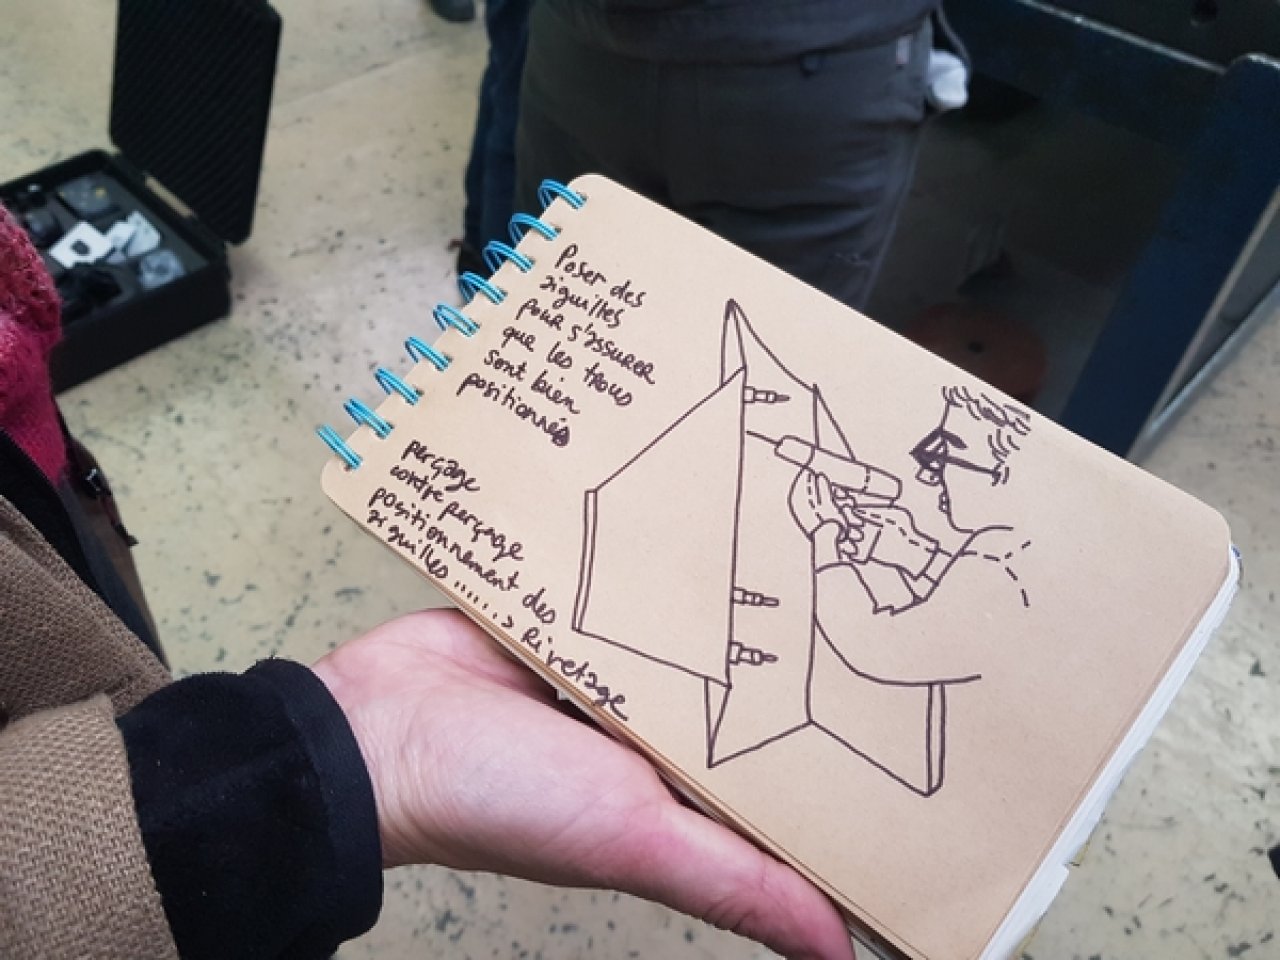 Poser des
aiguilles
pour s'assurer
que les trous
sont bien
positionnés
perçage
contre perçage
positionnement des
aiguilles ......> Rivetage